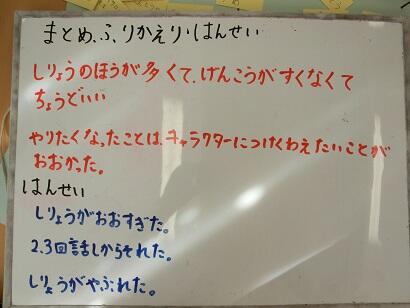 まとめ、ふりかえり・はんせい
しりょうのほうが多くて、げんこうがすくなくて
ちょうどいい
やりたくなったことは、キャラクターにつけくわえたいことが
おおかった。
はんせい
しりょうがおおすぎた。
2.3回話しからそれた。
しりょうがやぶれた。